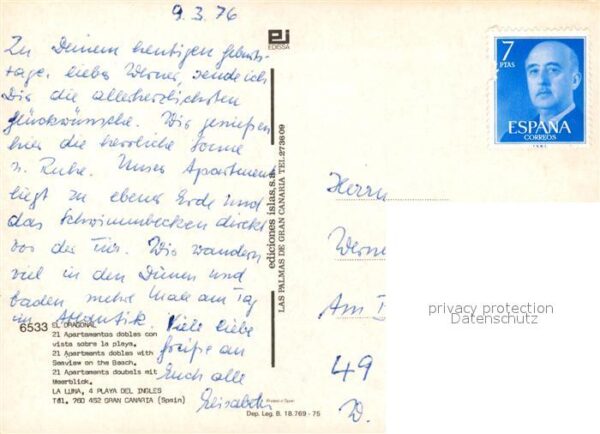 9.3.76
Zu Deinem heutigen Geburts-
tage, lieber Werner, sende ich
Dir die allerherzlichsten
Glückwünsche. Wir genießen
hier die herrliche Sonne
u. Ruhe. Unser Apartment
liegt zu ebener Erde und
das Schwimmbecken direkt
vor der Tür. Wir wandern
viel in den Dünen und
baden mehr Mals am Tag
im Atlantik. Viele liebe
Grüße an
Euch alle
Elisabeth
6533 EL DRAGONAL
21 Apartamentos dobles con
vista sobre la playa.
21 Apartments dobles with
Seaview on the Beach.
21 Apartaments doubels mit
Meerblick.
LA LUNA, 4 PLAYA DEL INGLES
Tél. 760 452 GRAN CANARIA (Spain)
Printed in Spain
Dep. Leg. B. 18.769 - 75
EDISSA
ediciones islas,s.a.
LAS PALMAS DE GRAN CANARIA TEL.273609
7
PTAS
ESPAÑA
CORREOS
Herrn
Werne
Am
49
D.
privacy protection
Datenschutz